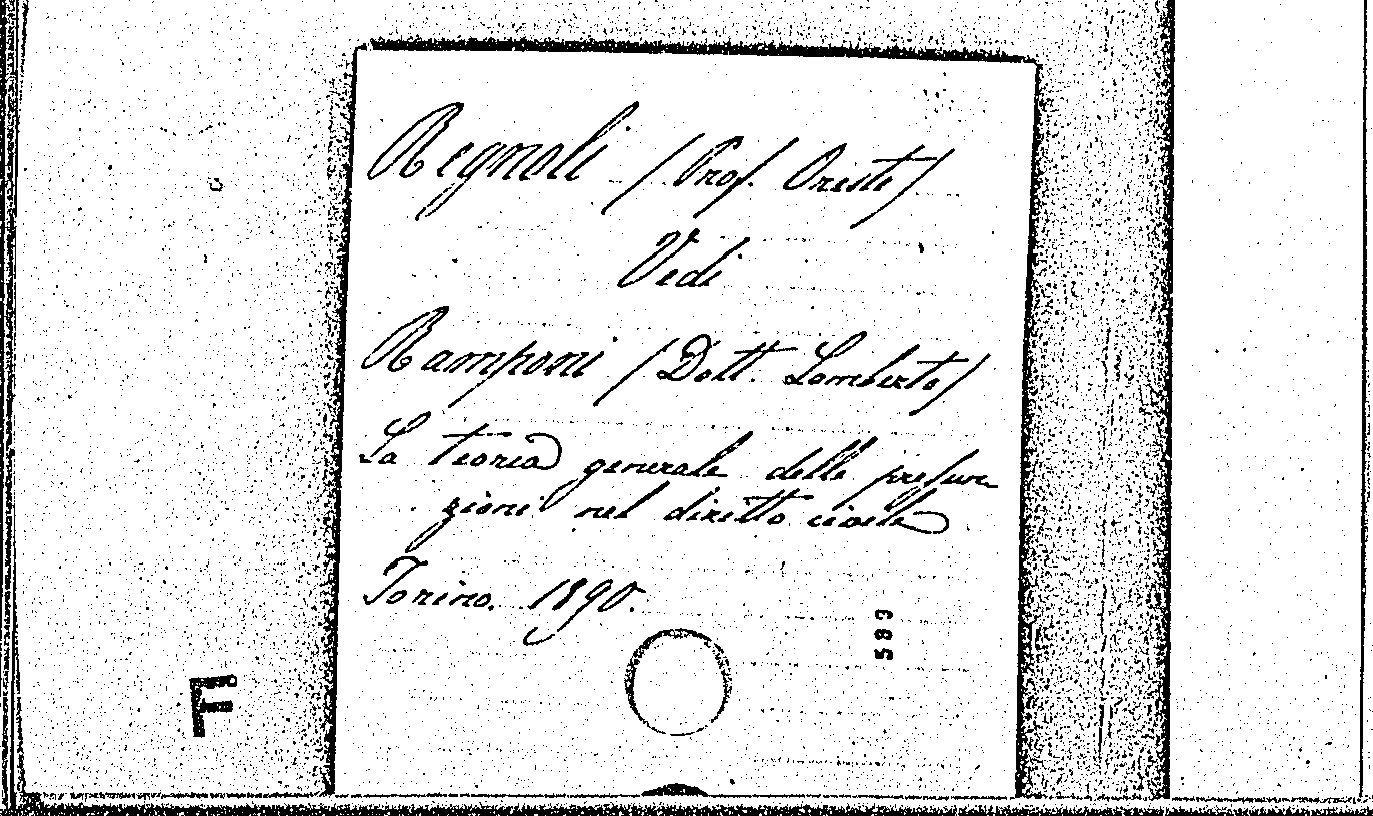 Regnoli (Prof. Oreste)
Vedi
Ramponi (Dott. Lamberto)
La teoria generale delle presun-
zioni nel diritto civile
Torino. 1890.
589
F